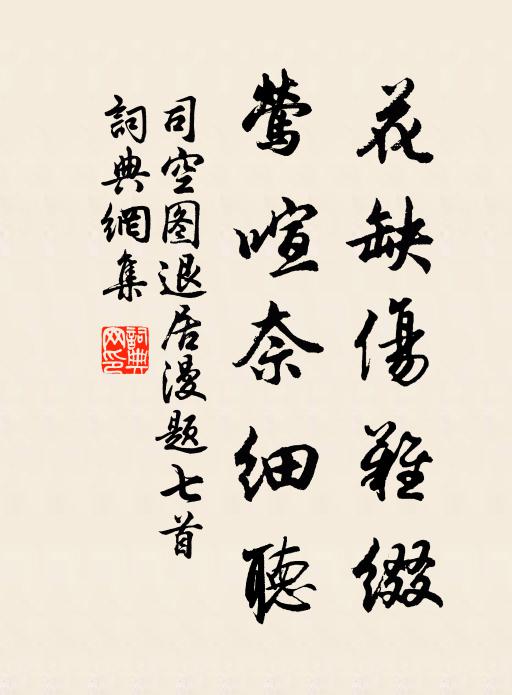 花缺傷難綴
鶯喧奈細聽
司空图退居漫题七首
詞典網集
詞典網印